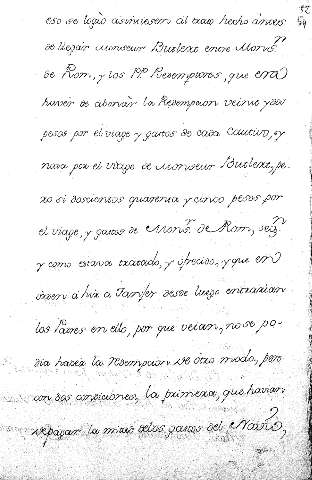 eso se logró asintiesen al trato hecho antes
de llegar Monsieur Butlere entre Mons.r
de Rom, y los PP. Redemptores, que era
haver de abonar la Redempcion veinte y dos
pesos por el viage y gastos de cada Cautivo, y
nada por el viage de Monsieur Butlere, pe-
ro si doscientos quarenta y cinco pesos por
el viage, y gastos de Mons.r de Rom, seg.n
y como estava tratado, y ofrecido, y que en
orden á hir a Tanjer desde luego entrarian
los Padres en ello, por que veian, no se po-
dia hacer la redempcion de otro modo, pero
con dos condiciones, la primera, que havian
de pagar la mitad de los gastos del Navio,